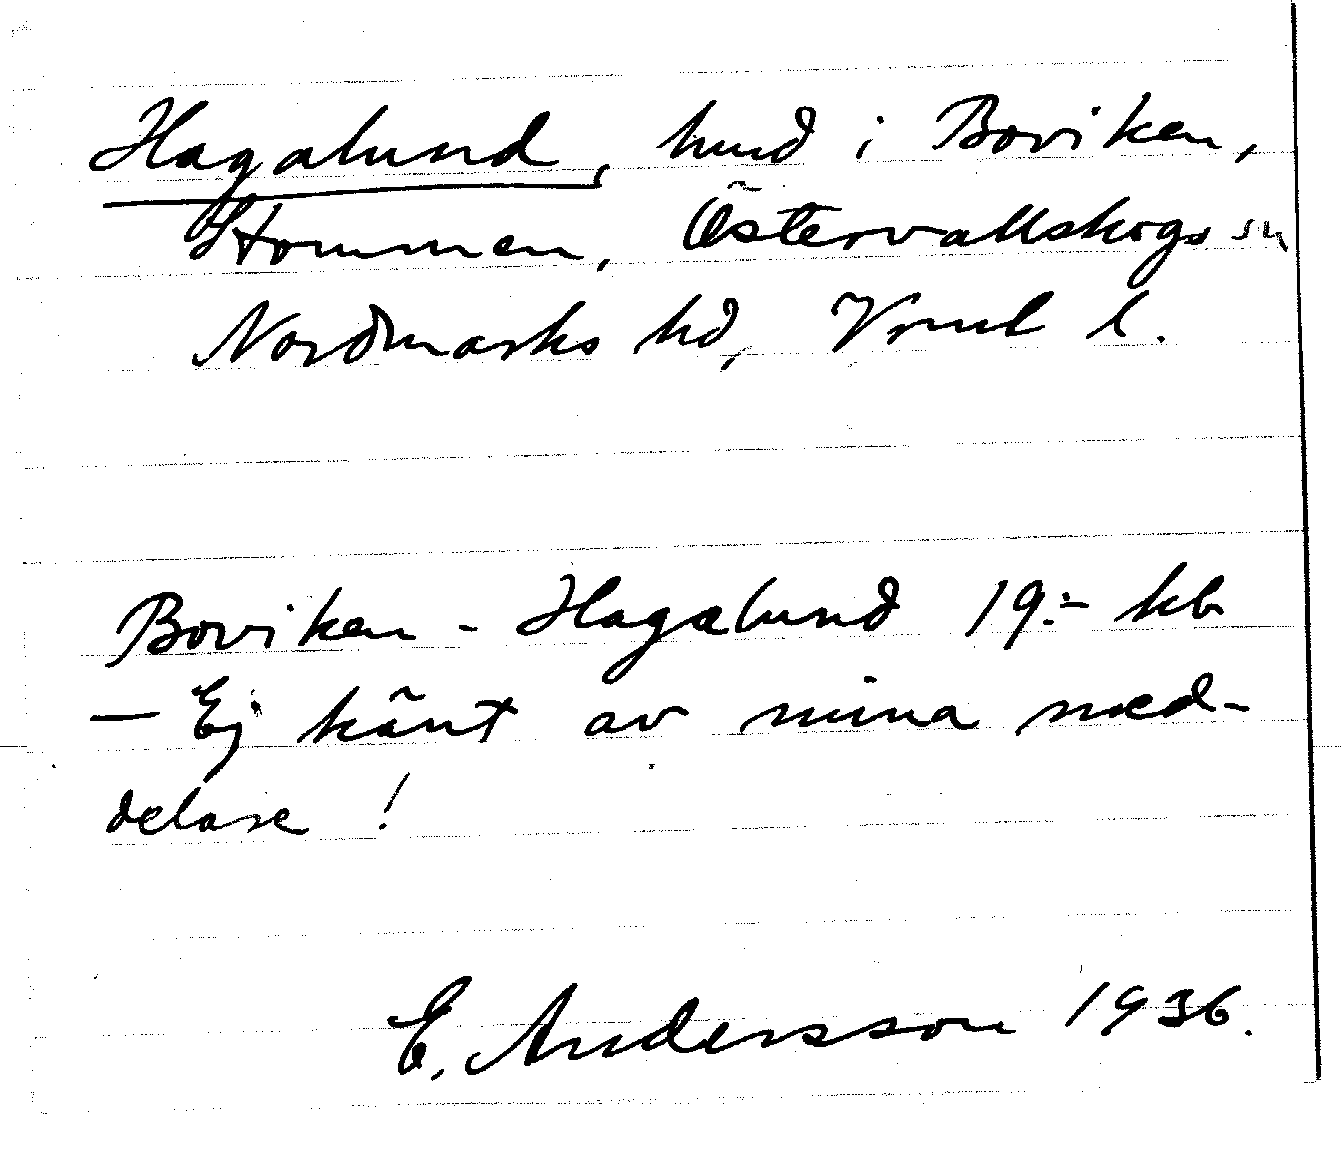 Hagalund, hmd i Boviken,
Stommen, Östervallskogs sn
Nordmarks hd, Vrml l.
Boviken - Hagalund 19:- kb
— Ej känt av mina med-
delare!
E. Andersson 1936.